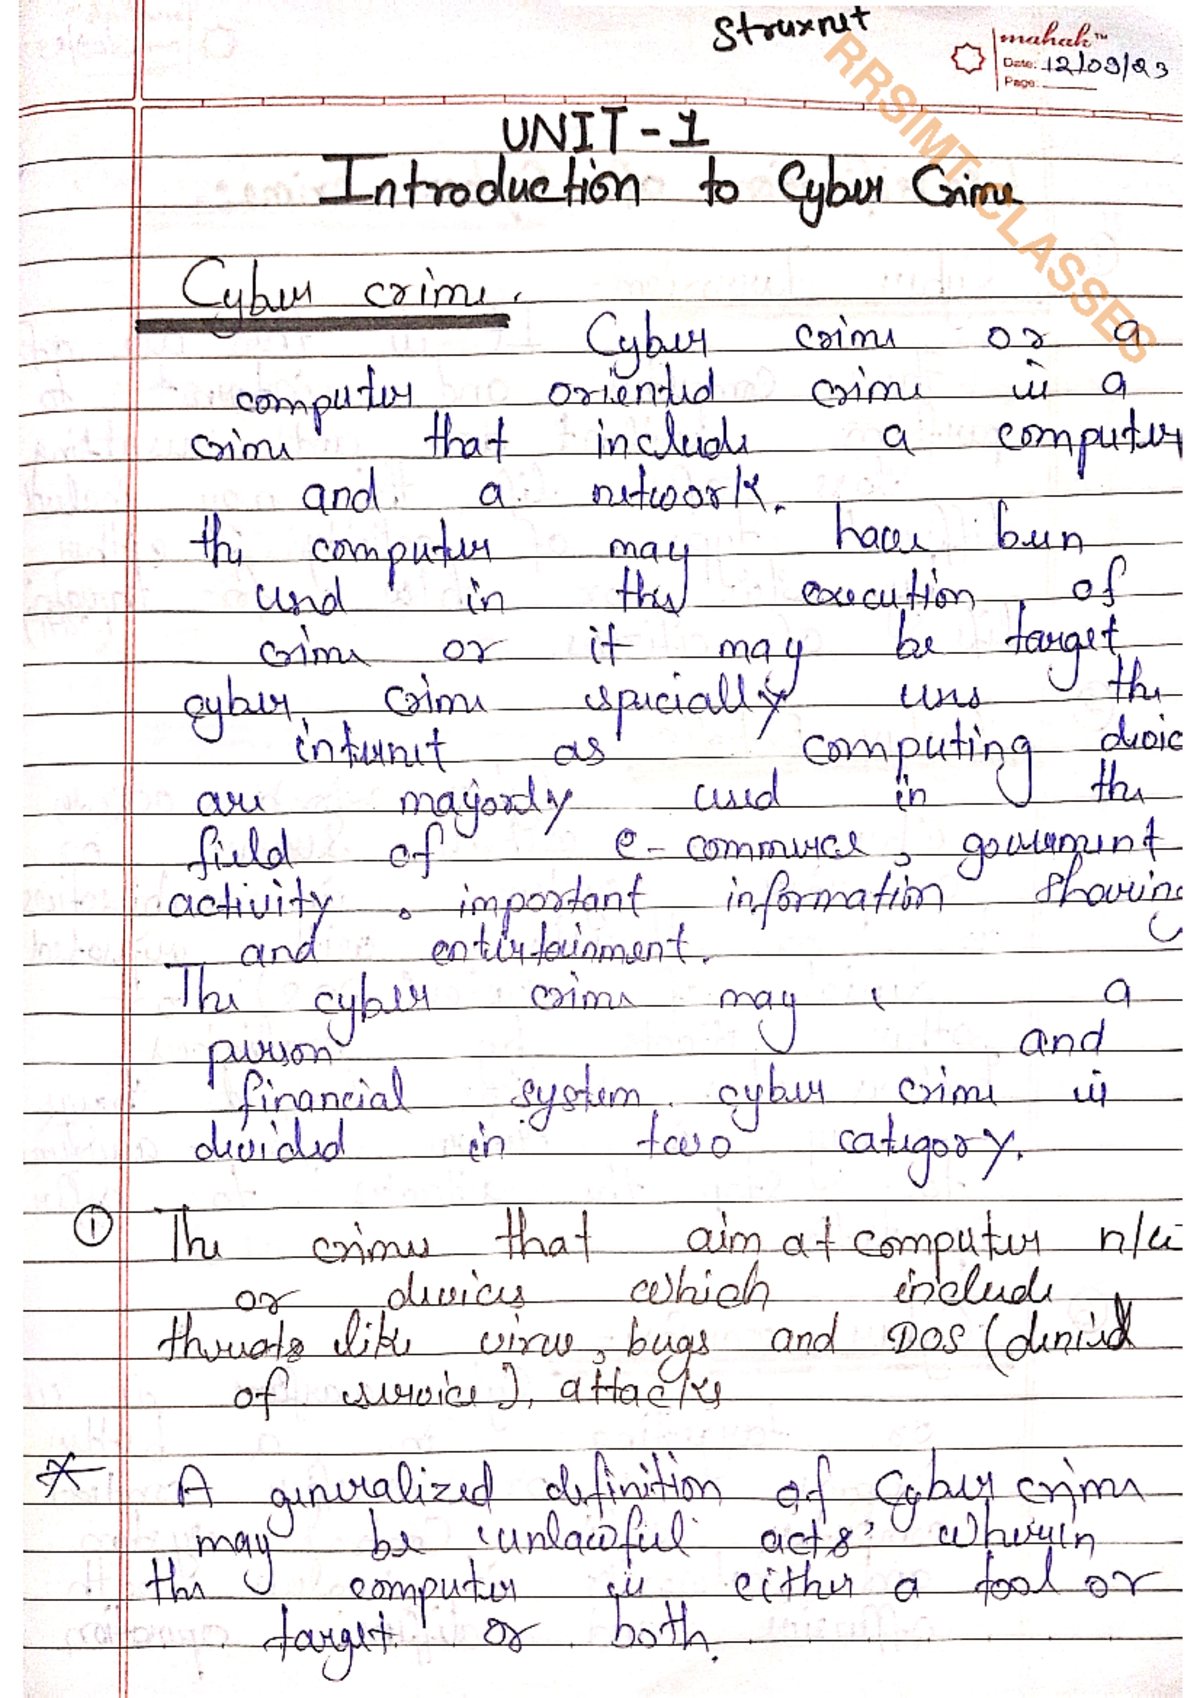 Struxnet
mahak™
Date: 12/09/23
Page:
RRSIMT CLASSES
UNIT-1
Introduction to Cyber Crime
Cyber crime.
Cyber crime or a
computer oriented crime is a
crime that include a computer
and a network.
the computer may have been
used in the execution of
crime or it may be target
cyber crime specially uses the
internet as computing devic
are majorly used in the
field of e-commerce, government
activity, important information sharing
and entertainment.
The cyber crime may a
person and
financial system. cyber crime is
divided in two category.
① The crimes that aim at computer n/w
or devices which include
threats like virus, bugs and DOS (denied
of service), attacks
* A generalized definition of Cyber crime
may be 'unlawful acts' wherein
the computer is either a tool or
target or both.